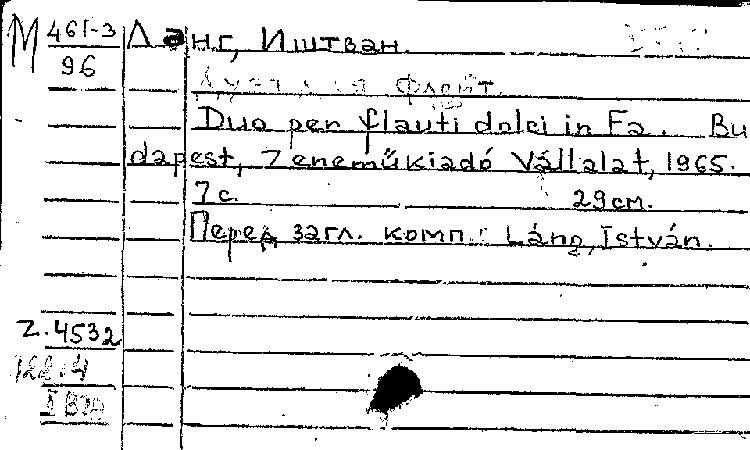 М 461-3
96
Ланг, Иштван.
Дуэт для флейт.
Duo per flauti dolci in Fa. Bu
dapest, Zeneműkiadó Vállalat, 1965.
7 с. 29 см.
Перед загл. комп.: Láng, István.
Z. 4532